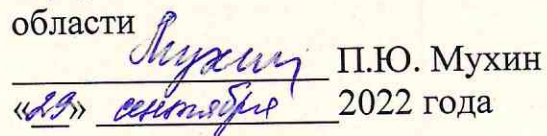 области
Мухин П.Ю. Мухин
«29» сентября 2022 года